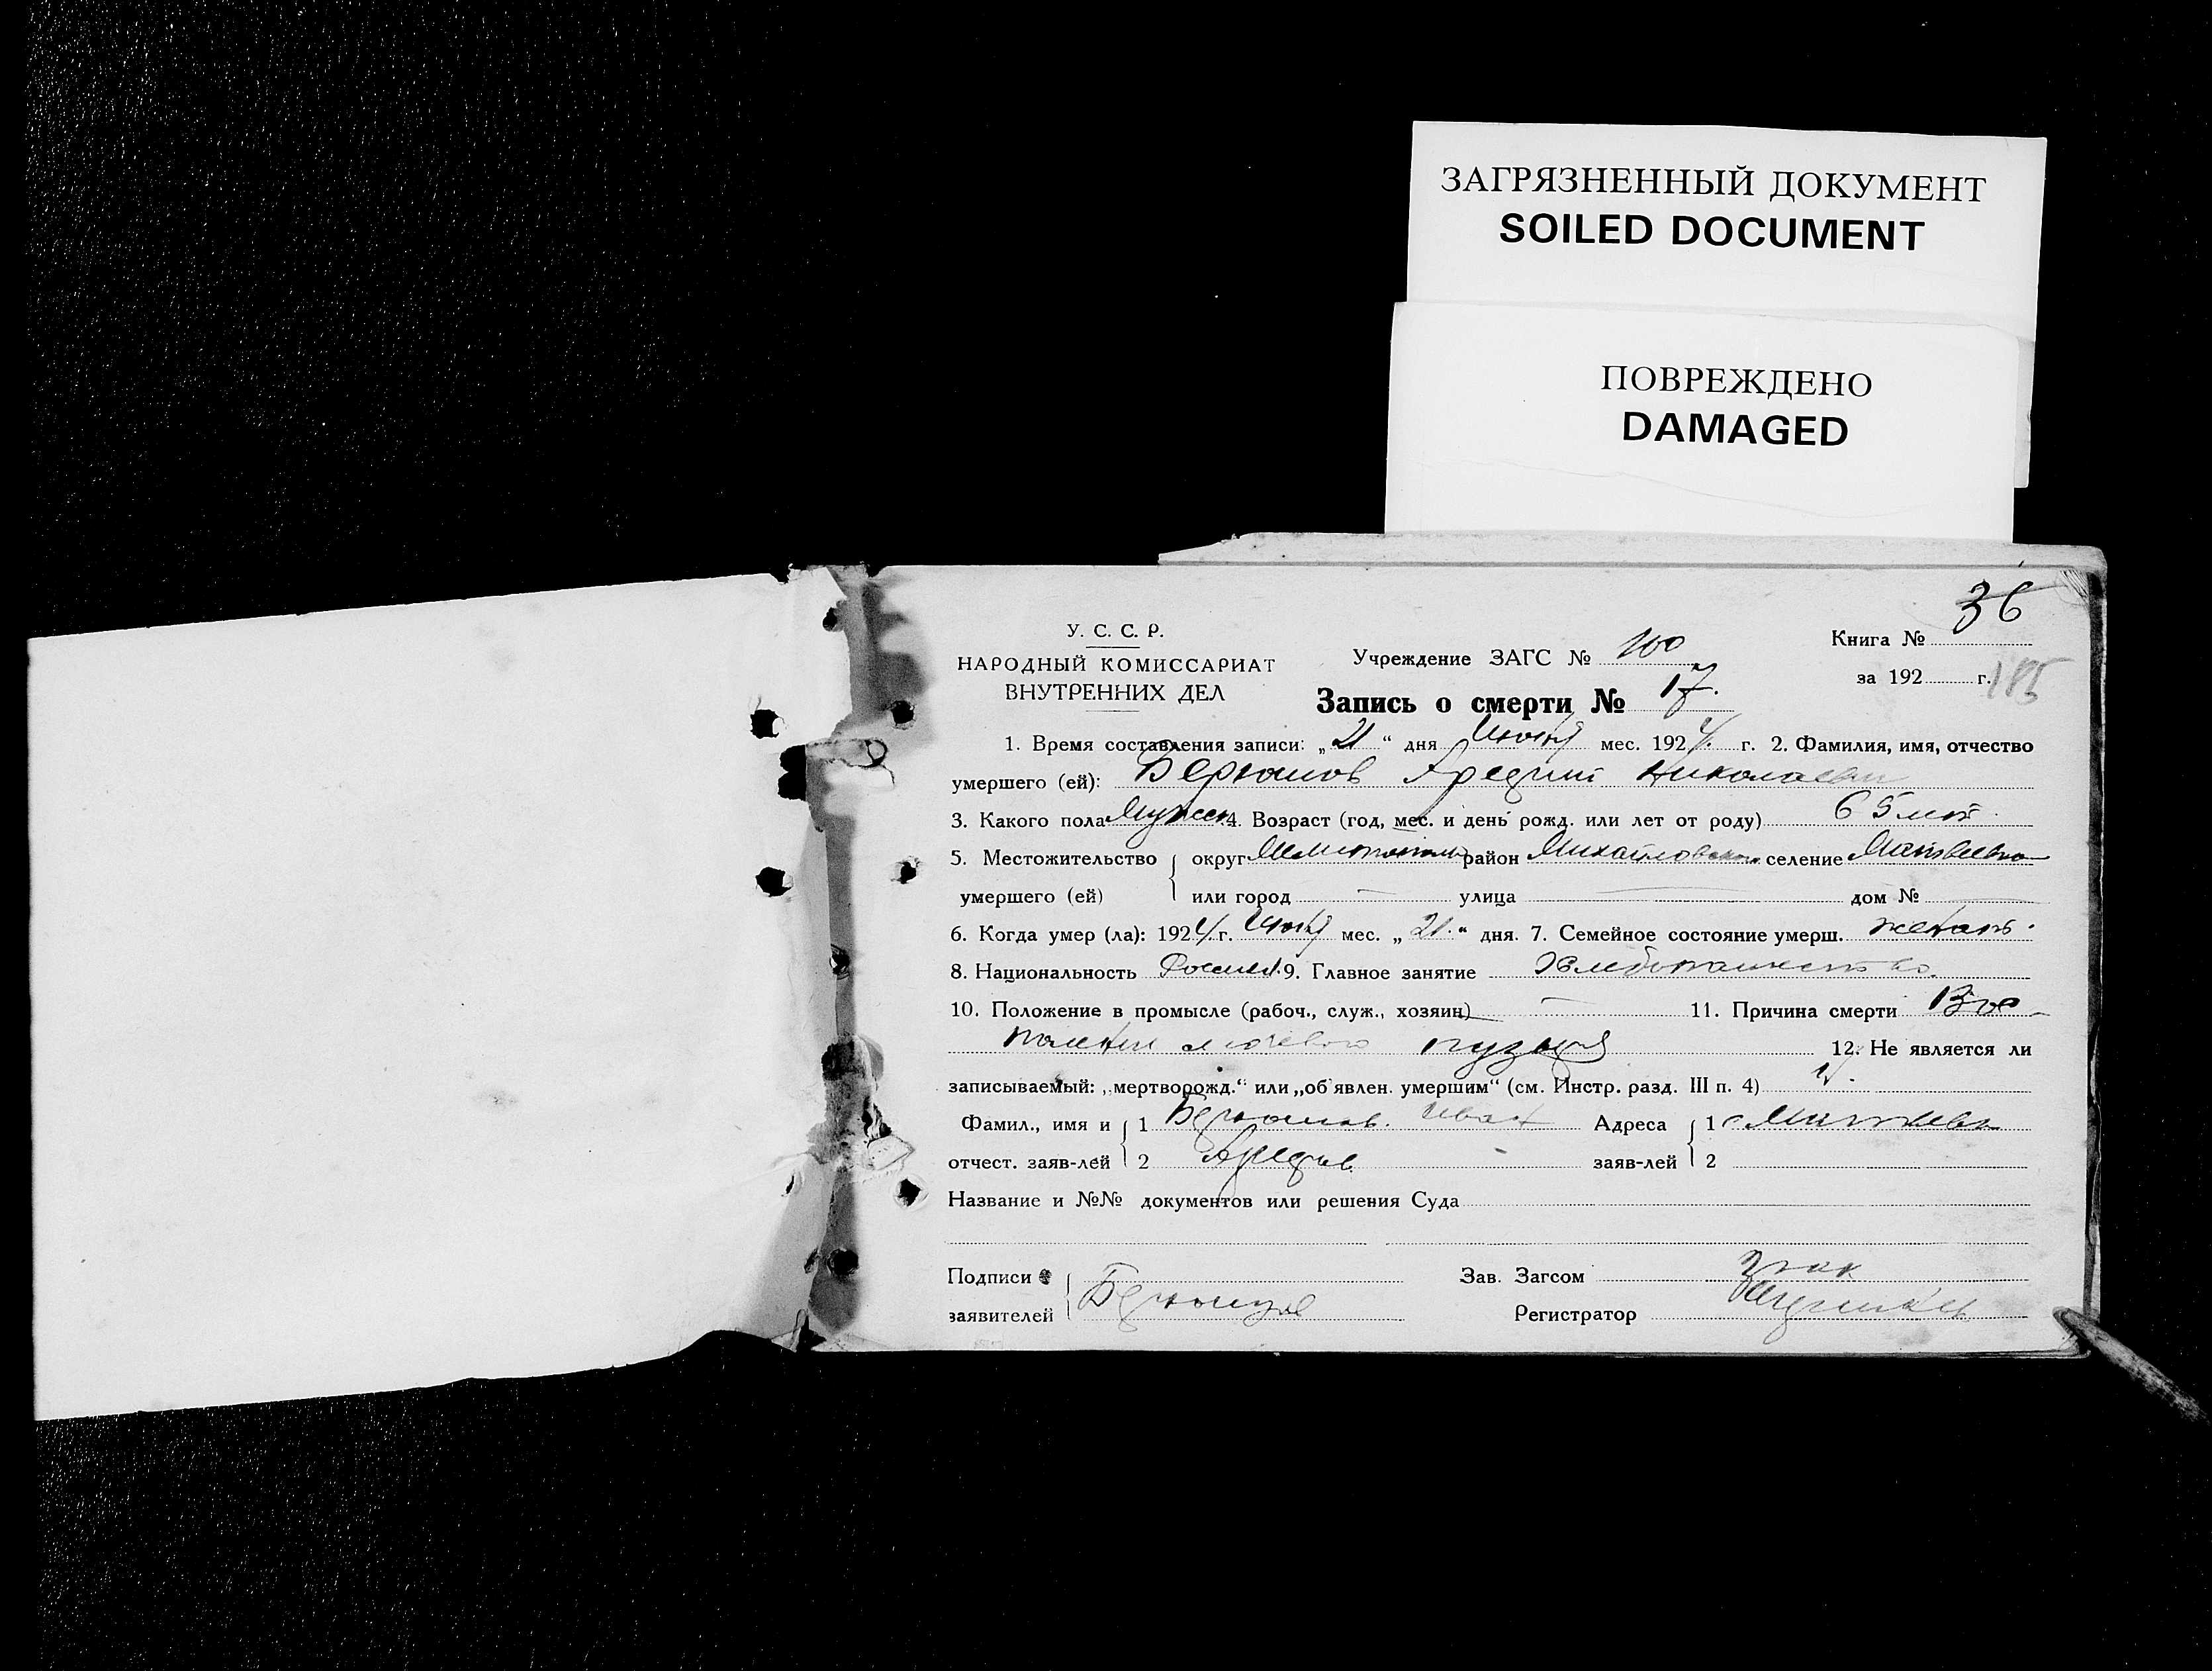 ЗАГРЯЗНЕННЫЙ ДОКУМЕНТ
SOILED DOCUMENT
ПОВРЕЖДЕНО
DAMAGED
36
У. С. С. Р.
НАРОДНЫЙ КОМИССАРИАТ
ВНУТРЕННИХ ДЕЛ
Учреждение ЗАГС № 100
Книга №
за 192 г. 185
Запись о смерти № 17.
1. Время составления записи: „21“ дня мес. 1924. г. 2. Фамилия, имя, отчество
умершего (ей): Николаевич
3. Какого пола Мужск. 4. Возраст (год, мес. и день рожд. или лет от роду) 65 лет
5. Местожительство округ Мелитополь район Михайловском селение Матвеевка
умершего (ей) или город — улица — дом № —
6. Когда умер (ла): 1924 г. мес. „21.“ дня. 7. Семейное состояние умерш. женат.
8. Национальность 9. Главное занятие Хлебопашество.
10. Положение в промысле (рабоч., служ., хозяин) — 11. Причина смерти Вос-
паление мочевого пузыря 12. Не является ли
записываемый: „мертворожд.“ или „об'явлен. умершим“ (см. Инстр. разд. III п. 4)
Фамил., имя и 1 Иван Адреса 1 с Матвеевка
отчест. заяв-лей 2 заяв-лей 2
Название и №№ документов или решения Суда
Подписи Зав. Загсом
заявителей Регистратор